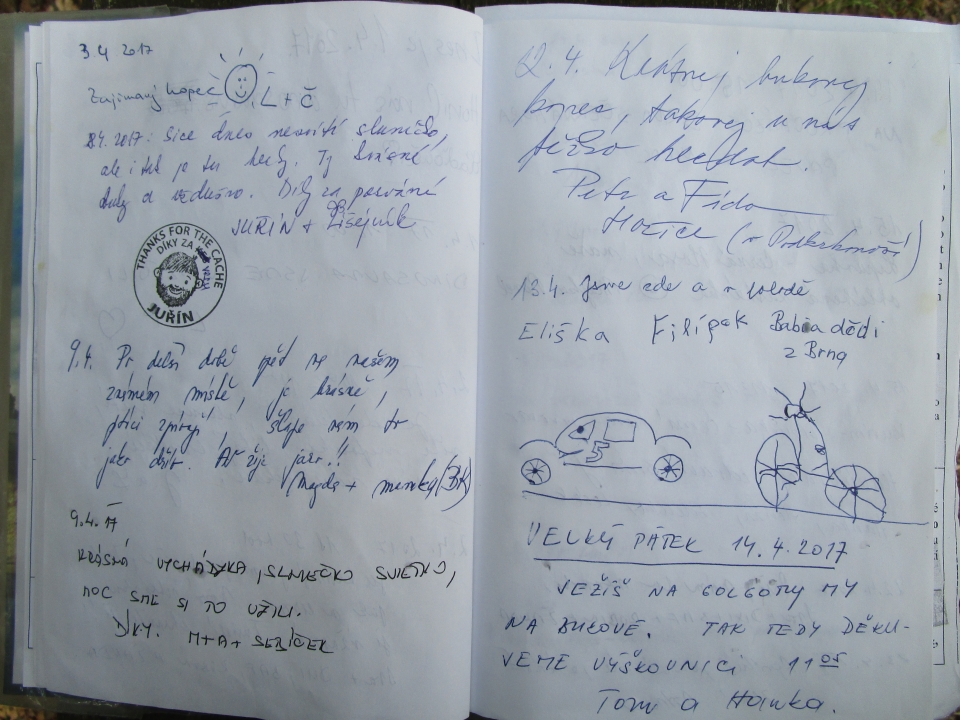 3.4 2017
Zajímavý kopec L + Č
8.4.2017: Sice dnes nesvítí sluníčko,
ale i tak je tu hezky. Ty krásné
buky a vzdušno. Díky za pozvání
JUŘÍN +
THANKS FOR THE CACHE
DÍKY ZA
JUŘÍN
9.4. Po delší době opět na našem
známém místě, je krásně,
ptáci zpívají, slunce nám to
jaro. Ať žije jaro!!
Magda + (BK)
9.4.17
KRÁSNÁ VYCHÁZKA, SLNIEČKO SVIETILO,
MOC SME SI TO UŽILI.
DÍKY. M+A+
12.4. Krásnej bukovej
kopec, takovej u nás
těžko hledat.
Petr a Fída
Hořice (v Podkrkonoší)
13.4. Jsme zde a v pohodě
Eliška Filípek Babi a dědi
z Brna
5
VELKÝ PÁTEK 14.4.2017
JEŽÍŠ NA GOLGOTY MY
NA BUKOVÉ. TAK TEDY DĚKU-
JEME VÝŠKOVNICI 11 05
Tom a Hanka.